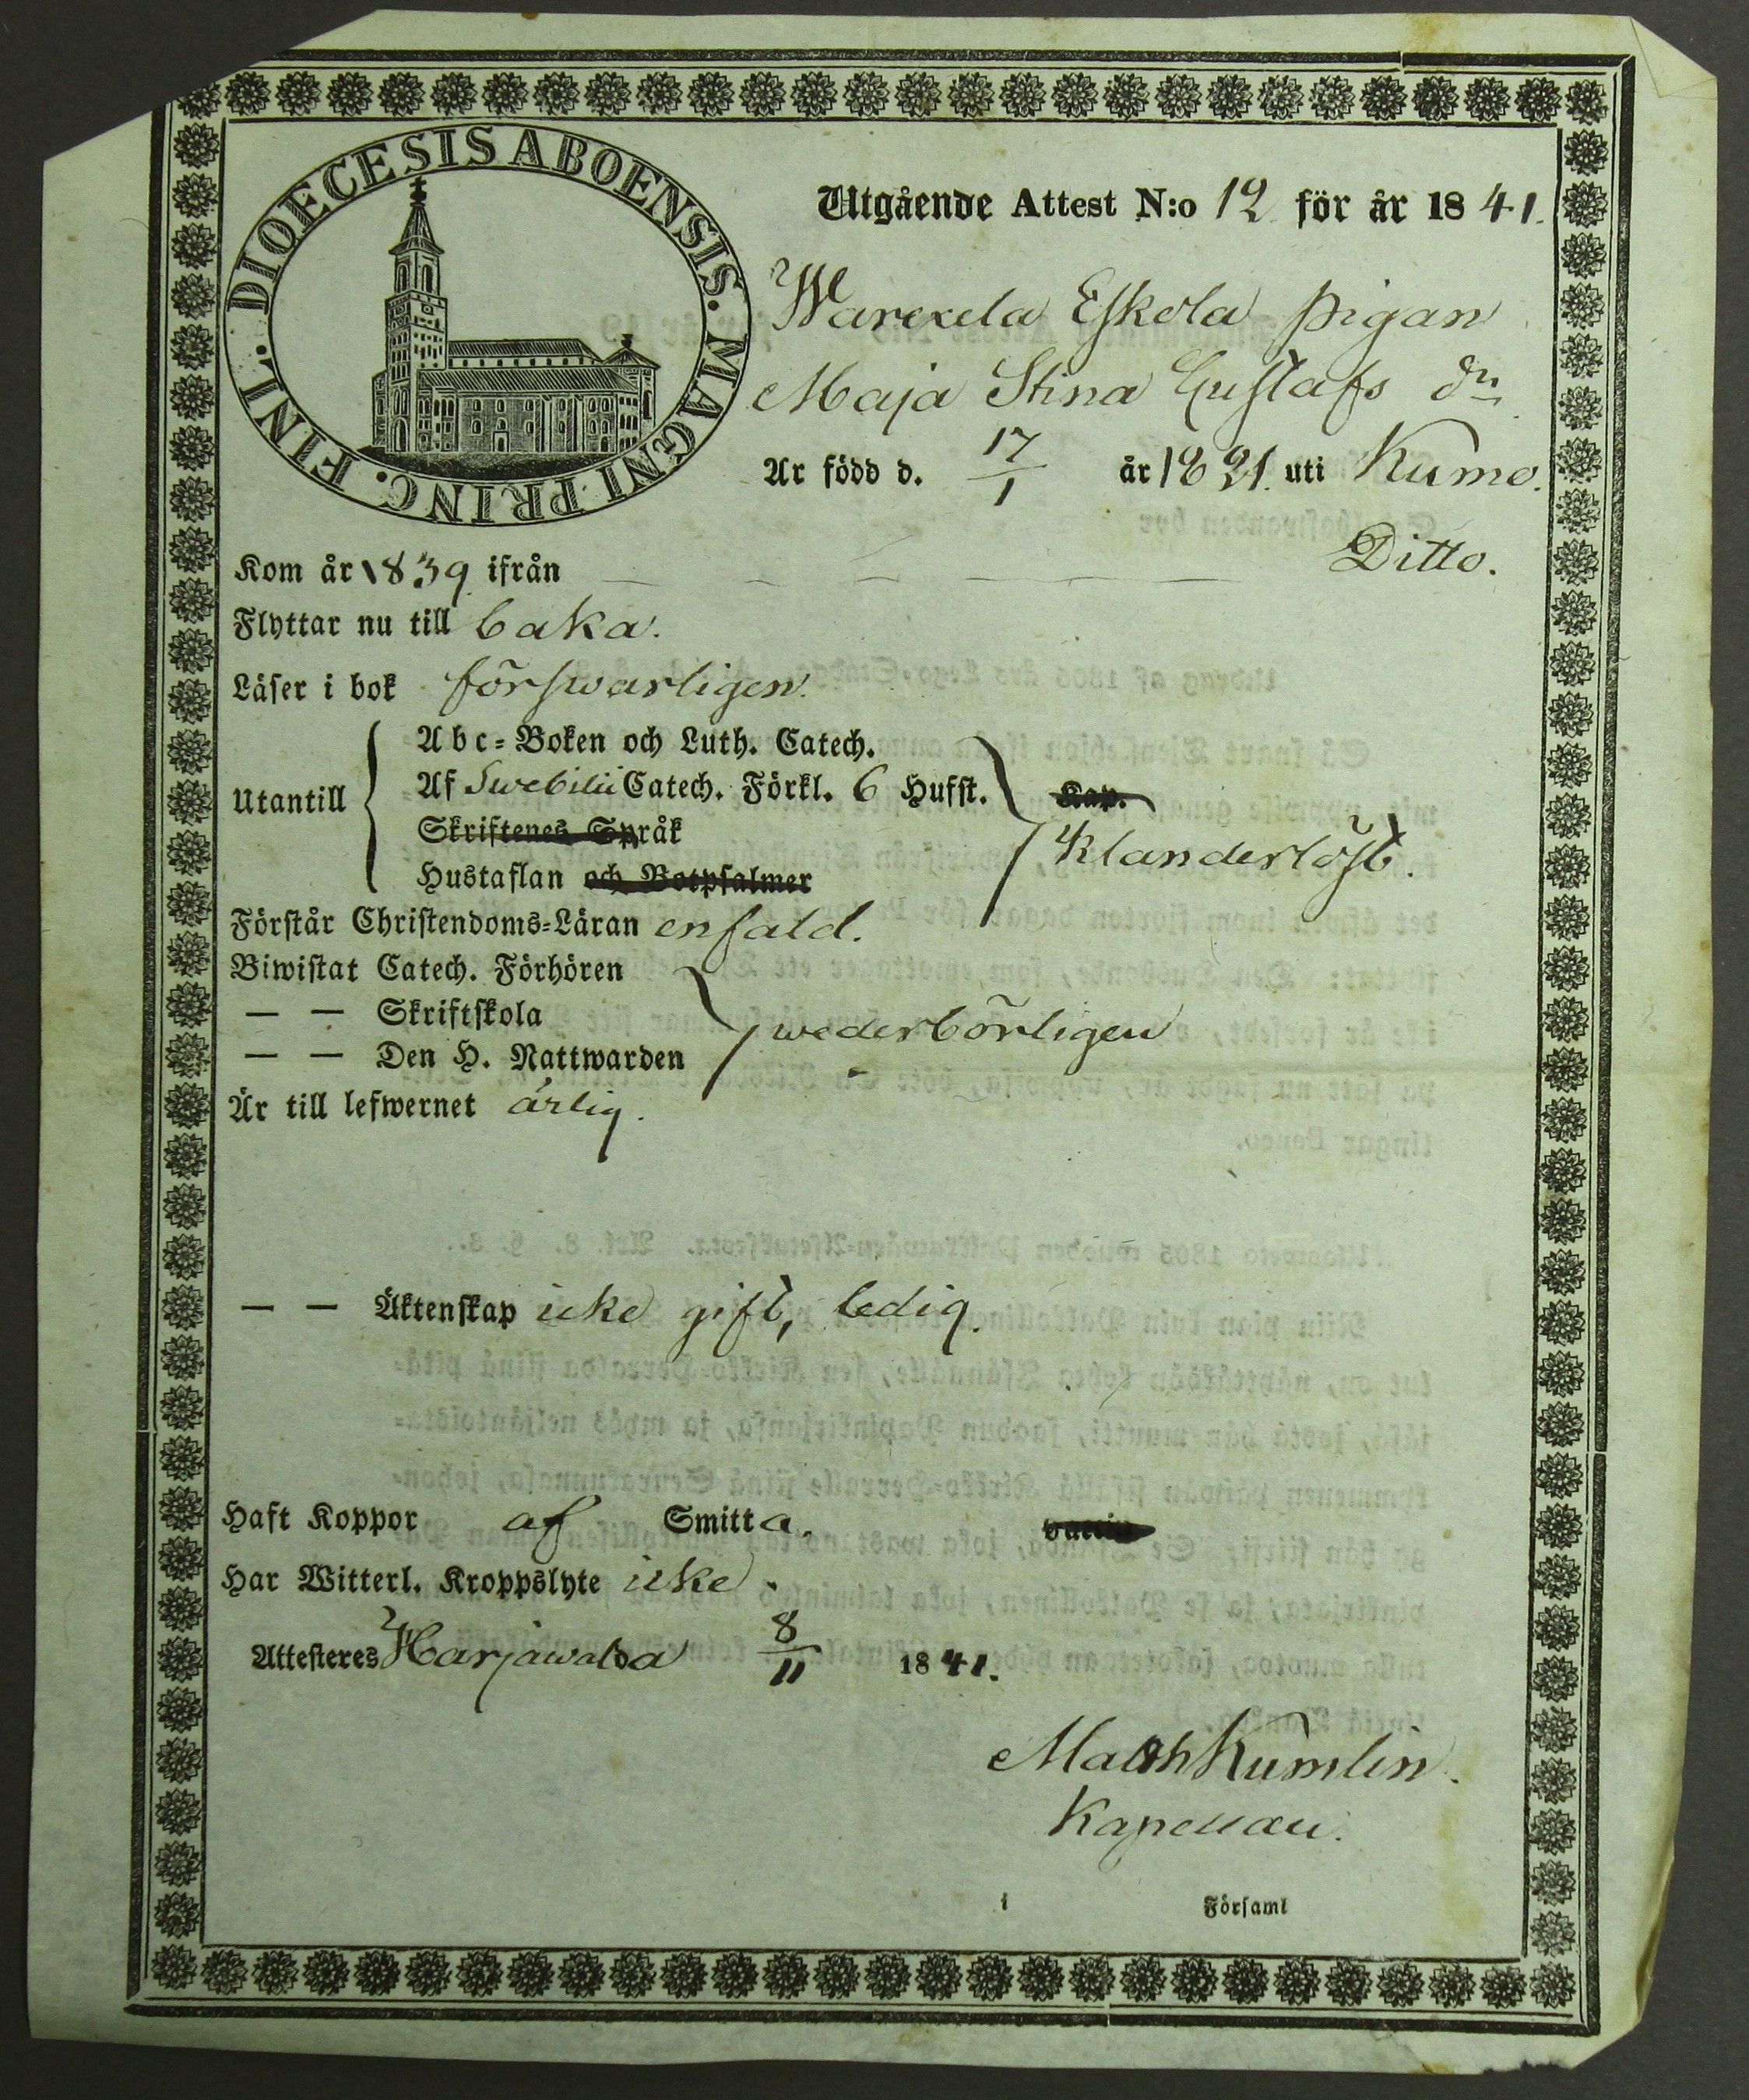 DIOECESIS ABOENSIS. MAGNI PRINC. FINL.
Utgående Attest N:o 12 för år 1841.
Warexela Eskola pigan
Maja Stina Gustafs dr
Är född d. 17/1 år 1821. uti Kumo.
Kom år 1839 ifrån — — — — — Ditto.
Flyttar nu till baka.
Läser i bok försvarligen.
Utantill
Abc-Boken och Luth. Catech.
Af Swebilii Catech. Förkl. 6 Hufst. Kap.
Skriftenes Språk
Hustaflan och Botpsalmer
Klanderlöst.
Förstår Christendoms-Läran enfald.
Biwistat Catech. Förhören
— — Skriftskola
wederbörligen
— — Den H. Nattwarden
Är till lefwernet ärlig.
— — Äktenskap icke gift, ledig.
Haft Koppor af Smitta.
Har Witterl. Kroppslyte icke.
Attesteres Harjawalda 8/11 1841.
Math Kumlin.
Kapellan.
i Församl